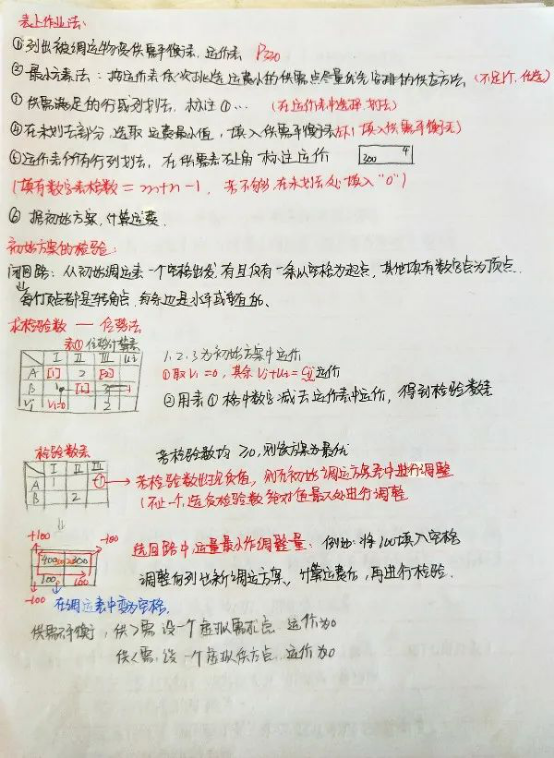 表上作业法:
①列出被调运物资供需平衡表、运价表 P320
②最小元素法:按运价表依次挑选运费小的供需点尽量优先安排的供应方法。(不是1个,任选)
③供需满足的行或列划去,标注①… (在运价表中选择、划去)
④在未划去部分,选取运费最小值,填入供需平衡表
⑤运价表所有行列划去,在供需表右上角标注运价 300 4
(填有数字表格数=m+n-1,若不够,在未划去处填入"0")
⑥据初始方案,计算运费.
初始方案的检验:
闭回路:从初始调运表一个空格出发,有且仅有一条以空格为起点,其他填有数字点为顶点.
每个顶点都是转角点,每条边是水平或垂直的、
求检验数—位势法
表① 位势计算表
I II III Ui
A [1] 2
B 1 3
Vj V1=0 2
1.2.3为初始方案中运价
①取V1=0,其余Vj+Ui=Cij运价
②用表①格中数字减去运价表中运价,得到检验数表
检验数表
I II III
A 1
B 2
若检验数均≥0,则该方案为最优
若检验数出现负值,则在初始调运方案表中进行调整
(不止一个,选负检验数绝对值最大处进行调整
+100 -100
100 100
-100
选回路中运量最小作调整量. 例如:将100填入空格
调整后列出新调运方案、计算运费后,再进行检验.
在调运表中变为空格.
供需不平衡,供>需 设一个虚拟需求点 运价为0
供<需,设一个虚拟供方点 运价为0